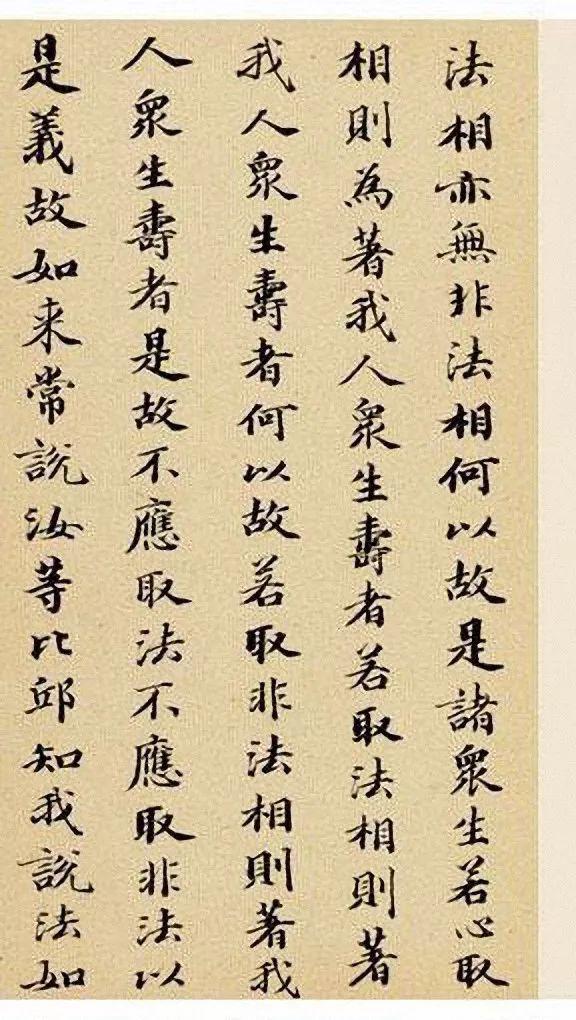 法相亦無非法相何以故是諸衆生若心取
相則為著我人衆生壽者若取法相則著
我人衆生壽者何以故若取非法相則著我
人衆生壽者是故不應取法不應取非法以
是義故如来常說汝等比邱知我說法如